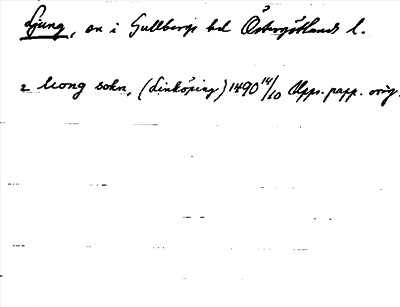 Ljung, sn i Gullbergs hd Östergötlands l.
i leong sokn, (Linköping) 1490 14/10 Upps. papp. orig.